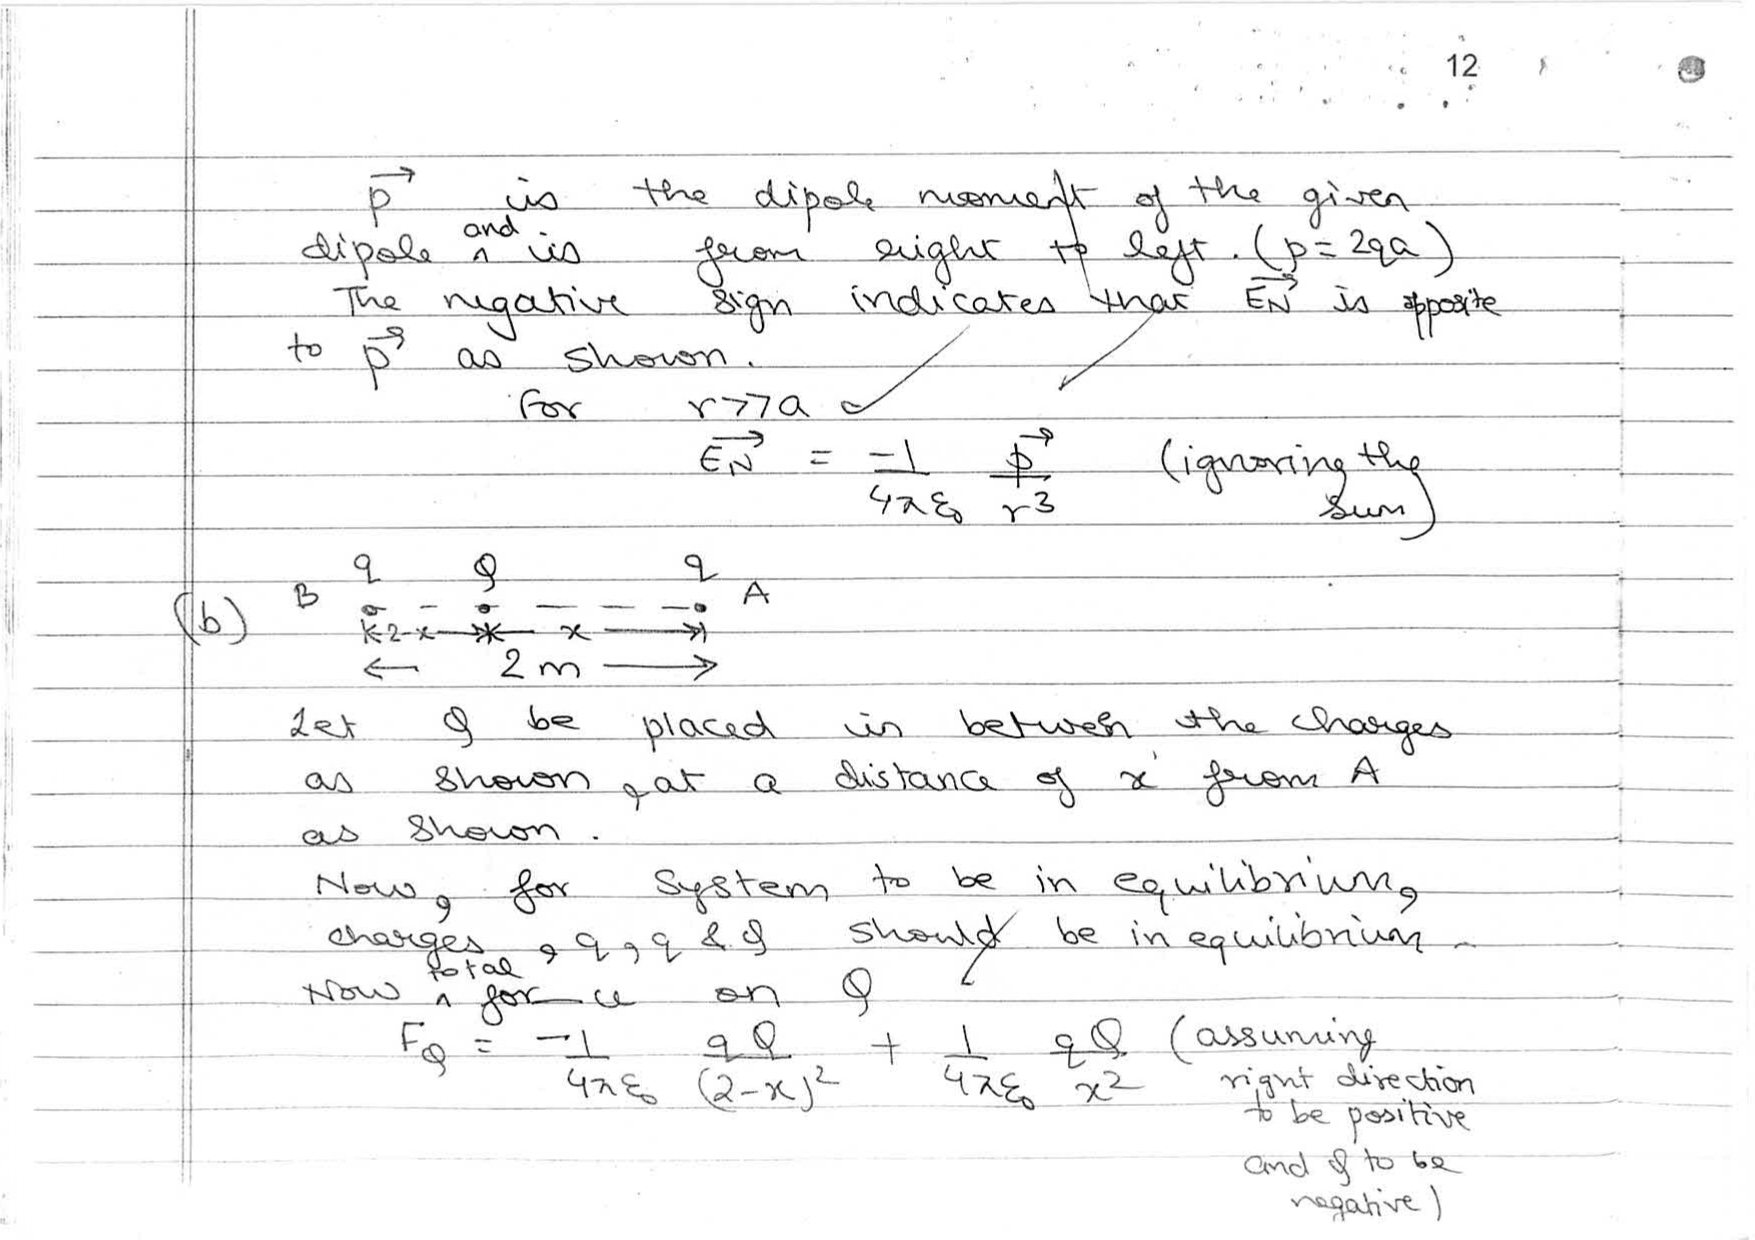 12
p⃗ is the dipole moment of the given
dipole and is from right to left. (p = 2qa)
The negative sign indicates that E⃗N is opposite
to p⃗ as shown.
For r>>a
E⃗N = -1/4πε₀ p⃗/r³ (ignoring the
sum)
q Q q
(b) B A
2-x x
2 m
Let Q be placed in between the charges
as shown, at a distance of x from A
as shown.
Now, for system to be in equilibrium,
charges, q, q & Q should be in equilibrium
Now total force on Q
F_Q = -1/4πε₀ qQ/(2-x)² + 1/4πε₀ qQ/x² (assuming
right direction
to be positive
and Q to be
negative)